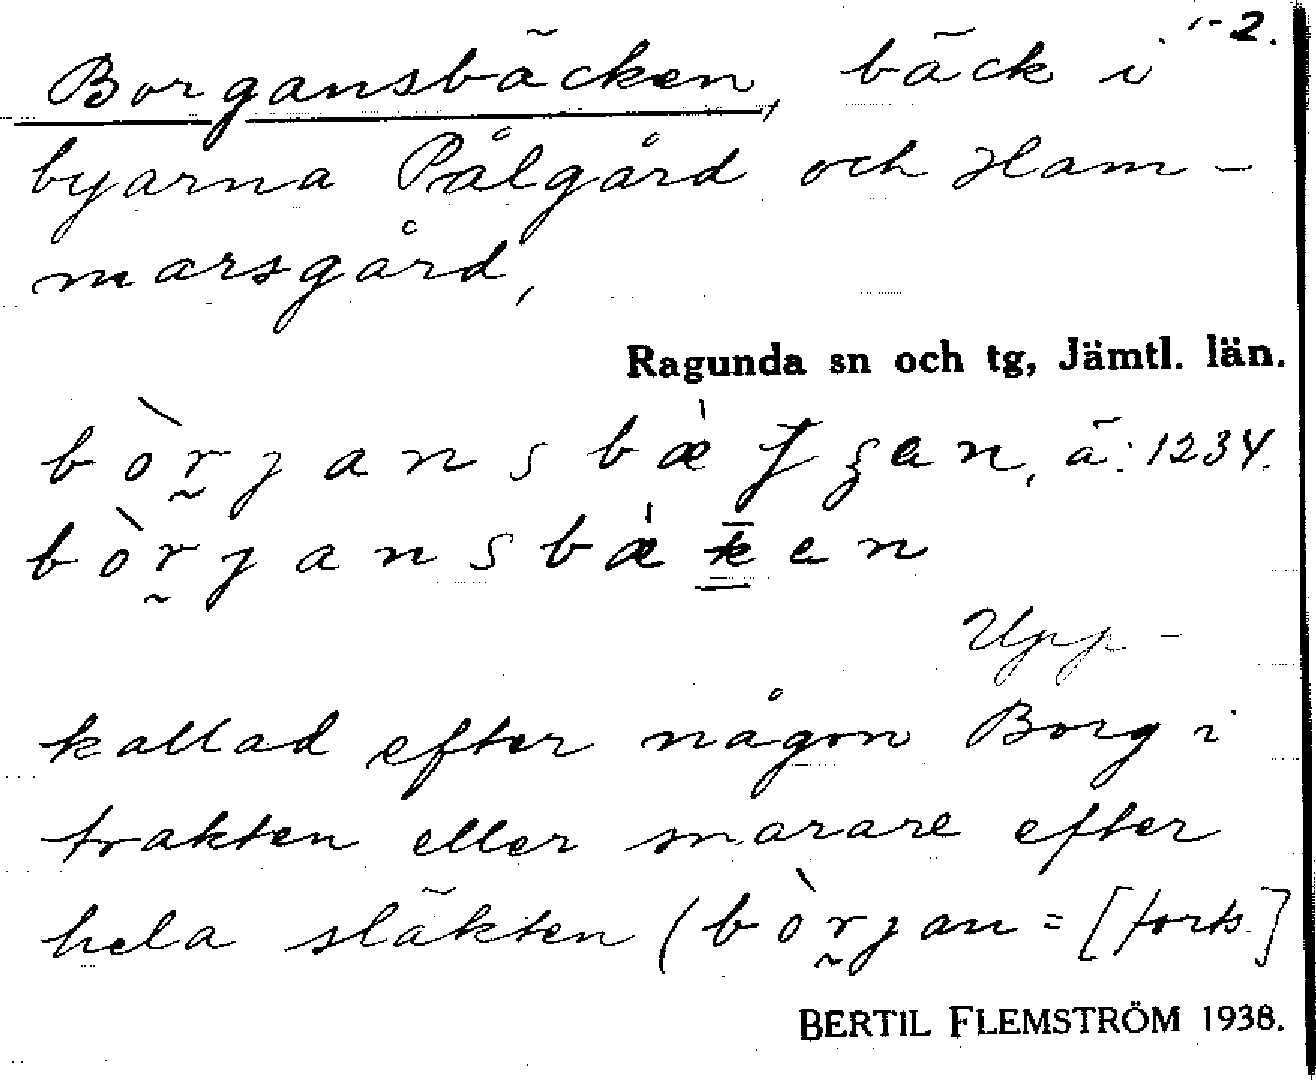 1-2.
Borgansbäcken, bäck i
byarna Pålgård och Ham-
marsgård,
Ragunda sn och tg, Jämtl. län.
ä: 1234.
Upp-
kallad efter någon Borg i
trakten eller snarare efter
hela släkten (bòr̰jan = [forts]
BERTIL FLEMSTRÖM 1938.